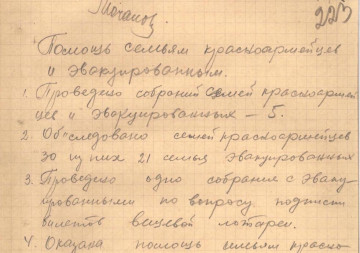 Точанов.
225
Помощь семьям красноармейцев
и эвакуированным.
1. Проведено собраний семей красноармей
цев и эвакуированных – 5.
2. Обследовано семей красноармейцев
30 из них 21 семья эвакуированных
3. Проведено одно собрание с эваку
ированными по вопросу подписи
билетов вещевой лотереи.
4. Оказана помощь семьям красно